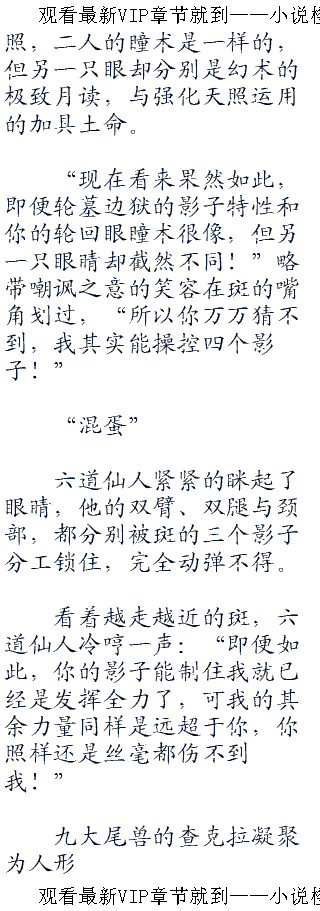 观看最新VIP章节就到——小说检
照，二人的瞳术是一样的，
但另一只眼却分别是幻术的
极致月读，与强化天照运用
的加具土命。
“现在看来果然如此，
即便轮墓边狱的影子特性和
你的轮回眼瞳术很像，但另
一只眼睛却截然不同！”略
带嘲讽之意的笑容在斑的嘴
角划过，“所以你万万猜不
到，我其实能操控四个影
子！”
“混蛋”
六道仙人紧紧的眯起了
眼睛，他的双臂、双腿与颈
部，都分别被斑的三个影子
分工锁住，完全动弹不得。
看着越走越近的斑，六
道仙人冷哼一声：“即便如
此，你的影子能制住我就已
经是发挥全力了，可我的其
余力量同样是远超于你，你
照样还是丝毫都伤不到
我！”
九大尾兽的查克拉凝聚
为人形
观看最新VIP章节就到——小说检